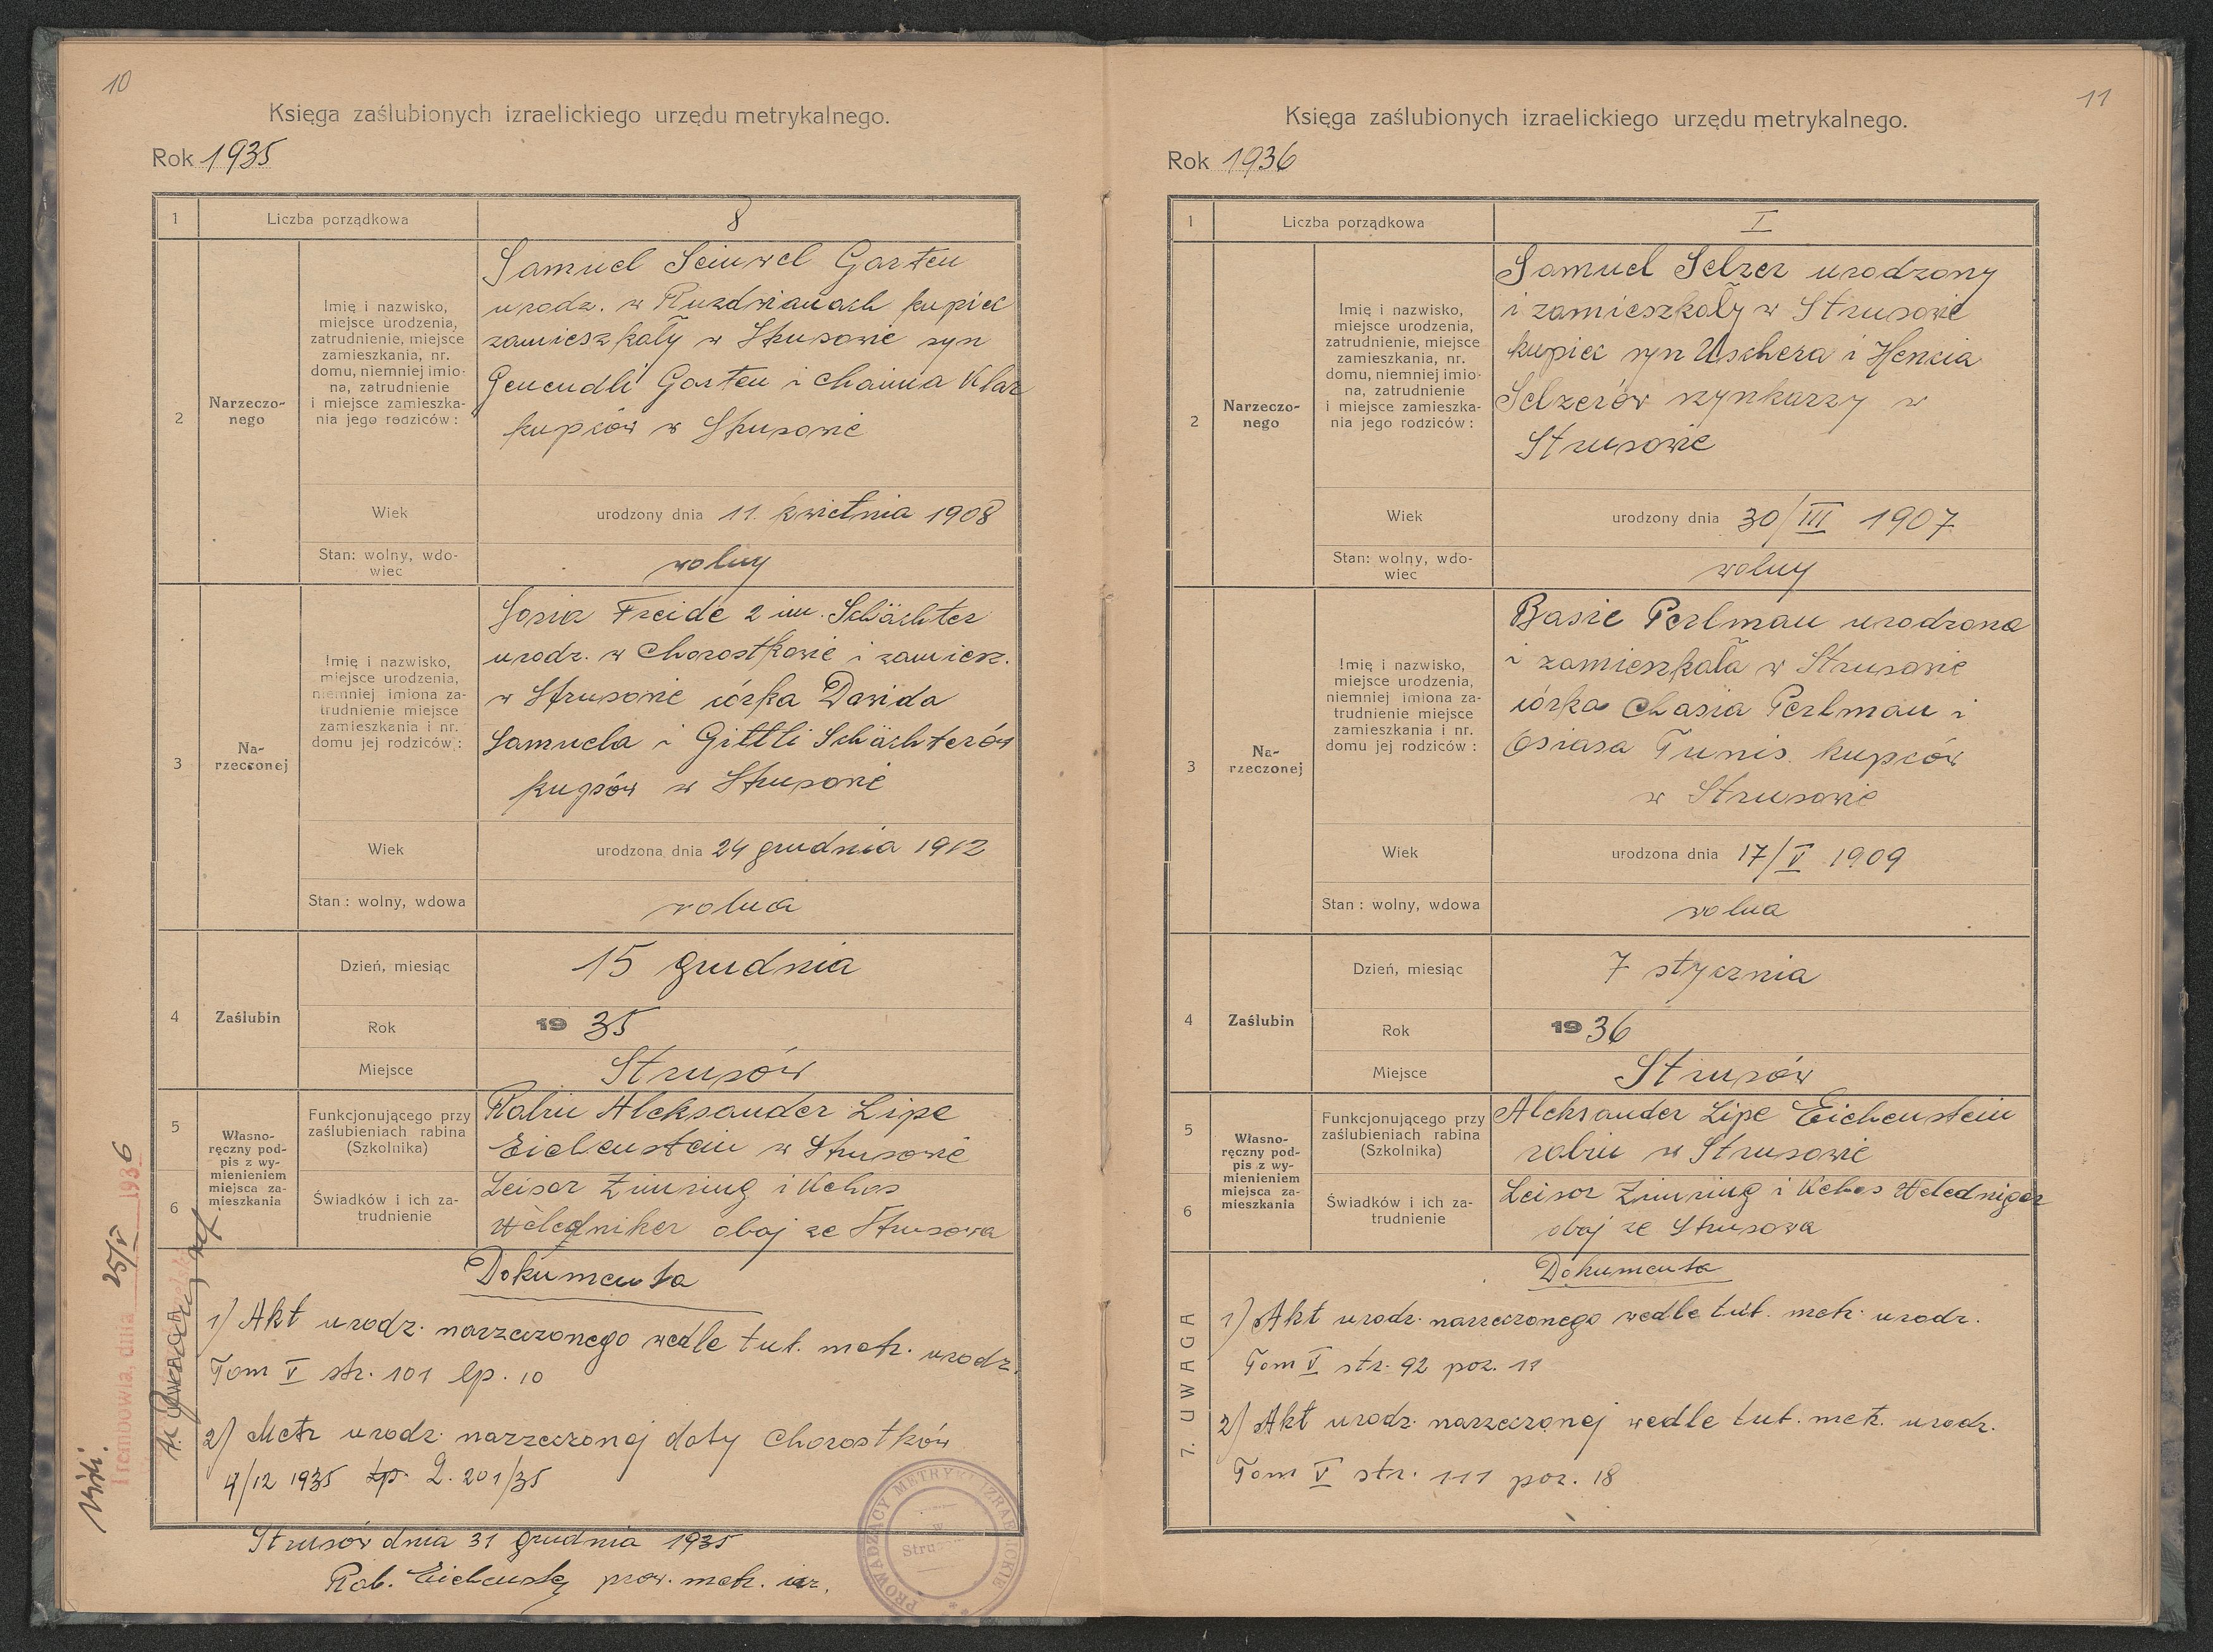 10
Księga zaślubionych izraelickiego urzędu metrykalnego.
Rok 1935
1
Liczba porządkowa
8
2
Narzeczo-
nego
Imię i nazwisko,
miejsce urodzenia,
zatrudnienie, miejsce
zamieszkania, nr.
domu, niemniej imio-
na, zatrudnienie
i miejsce zamieszka-
nia jego rodziców :
Samuel Seinwel Garten
urodz. w Ruzdwianach kupiec
zamieszkały w Strusowie syn
Genendli Garten i Chaima Klar
kupców w Strusowie
Wiek
urodzony dnia 11. kwietnia 1908
Stan: wolny, wdo-
wiec
wolny
3
Na-
rzeczonej
Imię i nazwisko,
miejsce urodzenia,
niemniej imiona za-
trudnienie miejsce
zamieszkania i nr.
domu jej rodziców :
Freide 2 im. Schächter
urodz. w Chorostkowie i zamiesz.
w Strusowie córka Dawida
Samuela i Gittli Schächterów
kupców w Strusowie
Wiek
urodzona dnia 24 grudnia 1912
Stan : wolny, wdowa
wolna
4
Zaślubin
Dzień, miesiąc
15 grudnia
Rok
19 35
Miejsce
Strusów
5
6
Własno-
ręczny pod-
pis z wy-
mienieniem
miejsca za-
mieszkania
Funkcjonującego przy
zaślubieniach rabina
(Szkolnika)
Rabin Aleksander Lipe
Eichenstein w Strusowie
Świadków i ich za-
trudnienie
Leisor Zimring i Kehos
Weledniker obaj ze Strusowa
Dokumenta
1) Akt urodz. narzeczonego wedle tut. metr. urodz.
Tom V str. 101 lp. 10
2) Metr urodz. narzeczonej daty Chorostków
4/12 1935 L. 201/35
Strusów dnia 31 grudnia 1935
Rab. prow. metr. izr.
PROWADZĄCY METRYKI IZRAELICKIE
w
Widz.
dnia 25/V 1936
11
Księga zaślubionych izraelickiego urzędu metrykalnego.
Rok 1936
1
Liczba porządkowa
I
2
Narzeczo-
nego
Imię i nazwisko,
miejsce urodzenia,
zatrudnienie, miejsce
zamieszkania, nr.
domu, niemniej imio-
na, zatrudnienie
i miejsce zamieszka-
nia jego rodziców :
Samuel Selzer urodzony
i zamieszkały w Strusowie
kupiec syn Uschera i Hencia
Selzerów szynkarzy w
Strusowie
Wiek
urodzony dnia 30/III 1907
Stan: wolny, wdo-
wiec
wolny
3
Na-
rzeczonej
Imię i nazwisko,
miejsce urodzenia,
niemniej imiona za-
trudnienie miejsce
zamieszkania i nr.
domu jej rodziców :
Basie Perlman urodzona
i zamieszkała w Strusowie
córka Chasia Perlman i
Osiasa Tunis kupców
w Strusowie
Wiek
urodzona dnia 17/V 1909
Stan : wolny, wdowa
wolna
4
Zaślubin
Dzień, miesiąc
7 stycznia
Rok
19 36
Miejsce
Strusów
5
6
Własno-
ręczny pod-
pis z wy-
mienieniem
miejsca za-
mieszkania
Funkcjonującego przy
zaślubieniach rabina
(Szkolnika)
Aleksander Lipe Eichenstein
rabin w Strusowie
Świadków i ich za-
trudnienie
Leisor Zimring i Kehos Weledniger
obaj ze Strusowa
7. UWAGA
Dokumenta
1) Akt urodz. narzeczonego wedle tut. metr. urodz.
Tom V str. 92 poz. 11
2) Akt urodz. narzeczonej wedle tut. metr. urodz.
Tom V str. 111 poz. 18